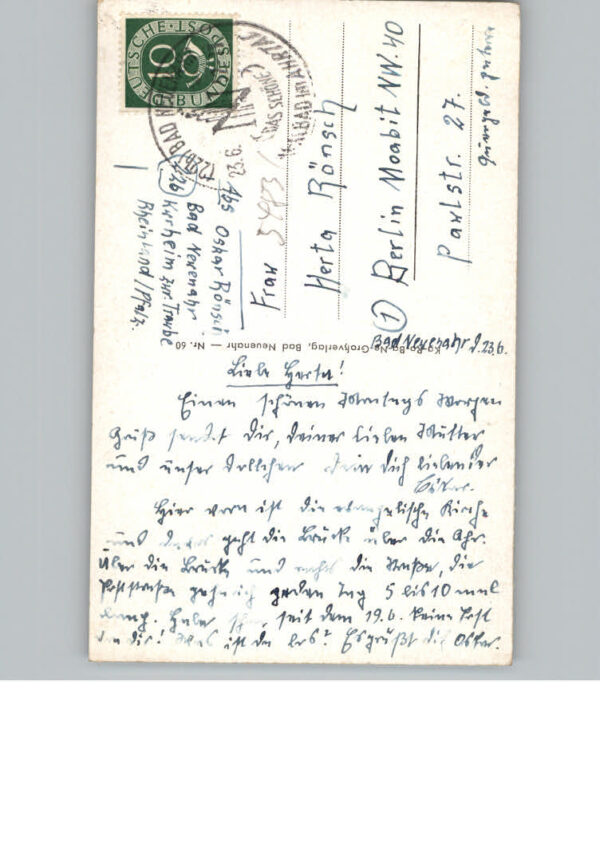 DEUTSCHE BUNDESPOST
10
(22b) BAD
DAS SCHÖNE
BAD IM AHRTAL
23.6.
Abs Oskar Rönsch
22b Bad Neuenahr
Kurheim zur Traube
Rheinland/Pfalz.
5483
Frau
Herta Rönsch
(1) Berlin Moabit NW. 40
Paulstr. 27.
Ko-Bo-Ba-Ne-Großverlag, Bad Neuenahr — Nr. 60
Bad Neuenahr d. 23.6.
Liebe Herta!
Einen schönen Montags Morgen
Gruß sendet Dir, deiner lieben Mutter
und unser Dollchen Dein Dich liebender
Oskar.
Hier vorn ist die evangelische Kirche
und geht die Brücke über die Ahr.
Über die Brücke und rechts die Straße, die
Poststraße gehe ich jeden Tag 5 bis 10 mal
lang. Habe seit dem 19.6. keine Post
von dir! Was ist da los? Es grüßt dich Oskar.